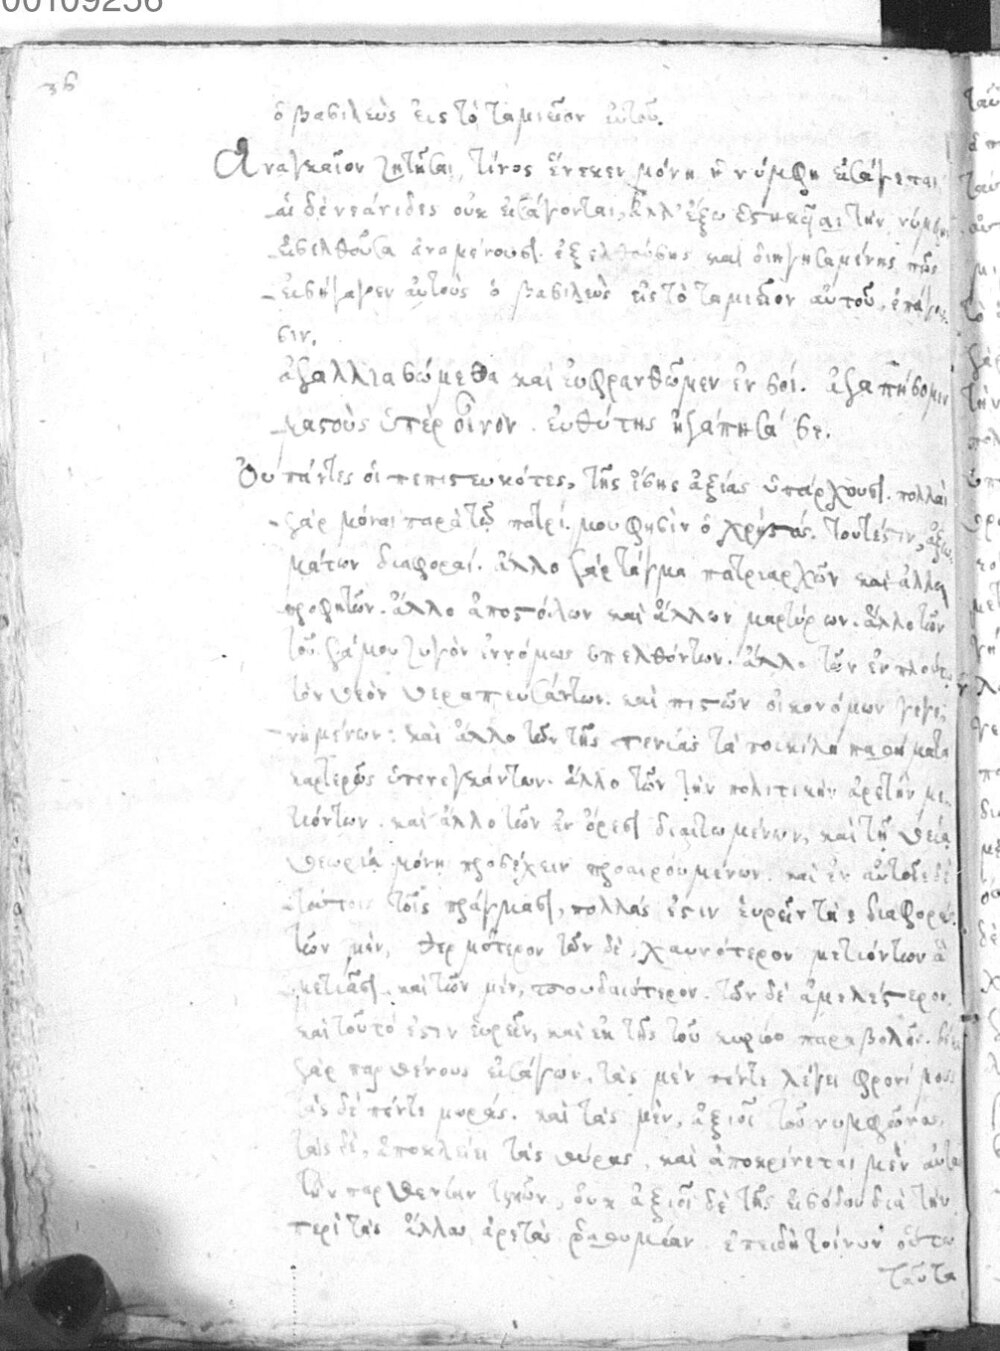 00109256
36
ὁ βασιλεὺς εἰς τὸ ταμιεῖον αὐτοῦ.
Ἀναγκαῖον ζητῆσαι, τίνος ἕνεκεν μόνη ἡ νύμφη εἰσάγεται
αἱ δὲ νεάνιδες οὐκ εἰσάγονται, ἀλλ' ἔξω ἑστηκυῖαι τὴν νύμφην
εἰσελθοῦσα ἀναμένουσι. ἐξελθούσης καὶ διηγησαμένης πῶς
εἰσήγαγεν αὐτοὺς ὁ βασιλεὺς εἰς τὸ ταμιεῖον αὐτοῦ, ἐπάγου
σιν.
ἀγαλλιασώμεθα καὶ εὐφρανθῶμεν ἐν σοί. ἀγαπήσομεν
μαστοὺς ὑπὲρ οἶνον. εὐθύτης ἠγάπησά σε.
Οὐ πάντες οἱ πεπιστευκότες, τῆς ἴσης ἀξίας ὑπάρχουσι. πολλαὶ
γὰρ μόναι παρὰ τῷ πατρί μου φησὶν ὁ χριστός. τουτέστιν, ἀξιω
μάτων διαφοραί. ἄλλο γὰρ τάγμα πατριαρχῶν καὶ ἄλλο
προφητῶν. ἄλλο ἀποστόλων καὶ ἄλλων μαρτύρων. ἄλλο τῶν
τοῦ γάμου ζυγὸν ἐννόμως ὑπελθόντων. ἄλλο τῶν ἐν πλούτῳ
τὸν θεὸν θεραπευσάντων. καὶ πιστῶν οἰκονόμων γεγε
νημένων: καὶ ἄλλο τῶν τῆς πενίας τὰ ποικίλα παθήματα
καρτερῶς ὑπενεγκάντων. ἄλλο τῶν τὴν πολιτικὴν ἀρετὴν με
τιόντων. καὶ ἄλλο τῶν ἐν ὄρεσι διαιτωμένων, καὶ τῇ θείᾳ
θεωρίᾳ μόνῃ προσέχειν προαιρουμένων. καὶ ἐν αὐτοῖς δὲ
τούτοις τοῖς πράγμασι, πολλάς ἐστιν εὑρεῖν τὰς διαφοράς.
τῶν μὲν, θερμότερον τῶν δὲ, χαυνότερον μετιόντων ἃ
μετίασι. καὶ τῶν μὲν, σπουδαιότερον. τῶν δὲ ἀμελέστερον.
καὶ τοῦτό ἐστιν εὑρεῖν, καὶ ἐκ τῆς τοῦ κυρίου παραβολῆς. δέκα
γὰρ παρθένους εἰσάγων, τὰς μὲν πέντε λέγει φρονίμους
τὰς δὲ πέντε μωράς. καὶ τὰς μὲν, ἀξιοῖ τοῦ νυμφῶνος,
ταῖς δὲ, ἀποκλείει τὰς θύρας, καὶ ἀποκρίνεται μὲν αὐτα
τῶν παρθενίαν τιμῶν, οὐκ ἀξιοῖ δὲ τῆς εἰσόδου διὰ τὴν
περὶ τὰς ἄλλας ἀρετὰς ῥαθυμίαν. ἐπειδὴ τοίνυν οὕτω
ταῦτα